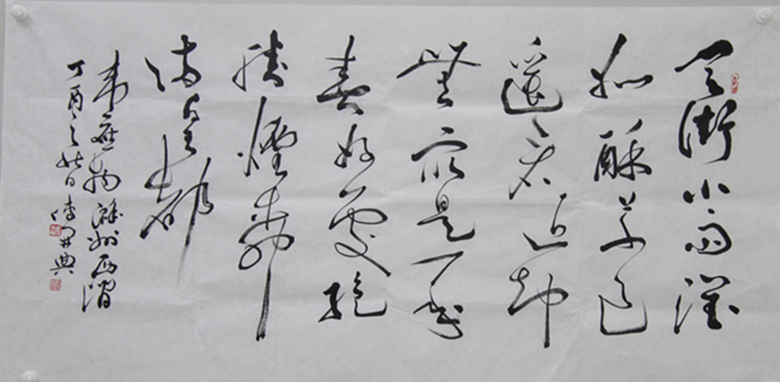 天街小雨潤
如酥草色
遥看近却
無最是一年
春好處絕
勝煙柳
滿皇都
韋應物滁州西澗
丁酉之